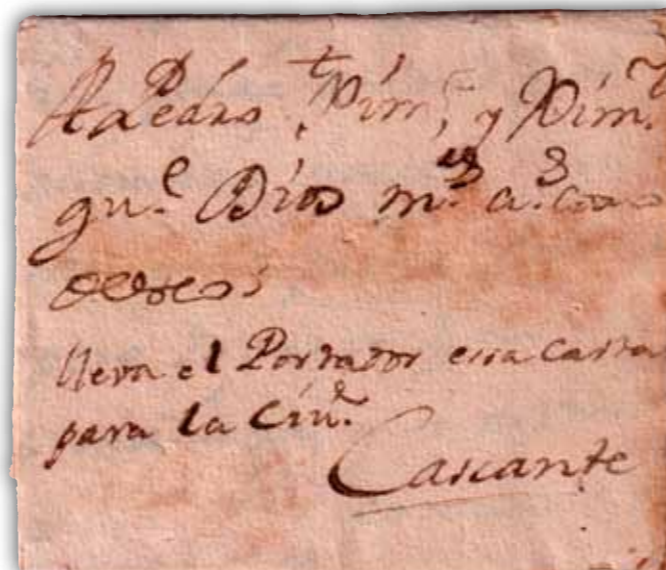 A Pedro Xim.z y Xim.z
gu.e Dios m.s a.s como
deseo
lleva el Portador esta Carta
para la Ciu.d
Cascante